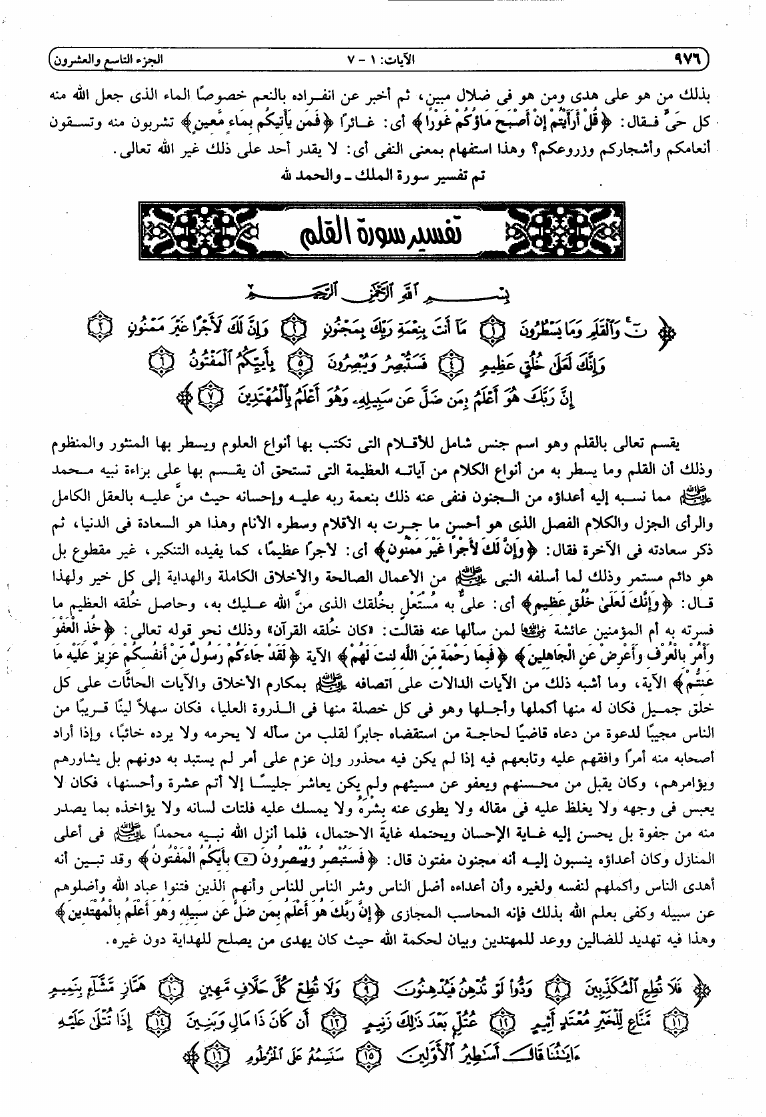 ٩٧٦ الآيات: ١ - ٧ الجزء التاسع والعشرون
بذلك من هو على هدى ومن هو فى ضلال مبين، ثم أخبر عن انفراده بالنعم خصوصًا الماء الذى جعل الله منه
كل حىّ فقال: ﴿قُلْ أَرَأَيْتُمْ إِنْ أَصْبَحَ مَاؤُكُمْ غَوْرًا﴾ أى: غائرًا ﴿فَمَن يَأْتِيكُم بِمَاءٍ مَّعِينٍ﴾ تشربون منه وتسقون
أنعامكم وأشجاركم وزروعكم؟ وهذا استفهام بمعنى النفى أى: لا يقدر أحد على ذلك غير الله تعالى.
تم تفسير سورة الملك - والحمد لله
تفسير سورة القلم
بِسْمِ اللَّهِ الرَّحْمَٰنِ الرَّحِيمِ
﴿نٓ وَالْقَلَمِ وَمَا يَسْطُرُونَ ﴿١﴾ مَا أَنتَ بِنِعْمَةِ رَبِّكَ بِمَجْنُونٍ ﴿٢﴾ وَإِنَّ لَكَ لَأَجْرًا غَيْرَ مَمْنُونٍ ﴿٣﴾
وَإِنَّكَ لَعَلَىٰ خُلُقٍ عَظِيمٍ ﴿٤﴾ فَسَتُبْصِرُ وَيُبْصِرُونَ ﴿٥﴾ بِأَييِّكُمُ الْمَفْتُونُ ﴿٦﴾
إِنَّ رَبَّكَ هُوَ أَعْلَمُ بِمَن ضَلَّ عَن سَبِيلِهِ وَهُوَ أَعْلَمُ بِالْمُهْتَدِينَ ﴿٧﴾﴾
يقسم تعالى بالقلم وهو اسم جنس شامل للأقلام التى تكتب بها أنواع العلوم ويسطر بها المنثور والمنظوم
وذلك أن القلم وما يسطر به من أنواع الكلام من آياته العظيمة التى تستحق أن يقسم بها على براءة نبيه محمد
ﷺ مما نسبه إليه أعداؤه من الجنون فنفى عنه ذلك بنعمة ربه عليه وإحسانه حيث منَّ عليه بالعقل الكامل
والرأى الجزل والكلام الفصل الذى هو أحسن ما جرت به الأقلام وسطره الأنام وهذا هو السعادة فى الدنيا، ثم
ذكر سعادته فى الآخرة فقال: ﴿وَإِنَّ لَكَ لأَجْرًا غَيْرَ مَمْنُونٍ﴾ أى: لأجرًا عظيمًا، كما يفيده التنكير، غير مقطوع بل
هو دائم مستمر وذلك لما أسلفه النبى ﷺ من الأعمال الصالحة والأخلاق الكاملة والهداية إلى كل خير ولهذا
قال: ﴿وَإِنَّكَ لَعَلَىٰ خُلُقٍ عَظِيمٍ﴾ أى: علىٌّ به مُستَعلٍ بخُلقك الذى منَّ الله عليك به، وحاصل خلقه العظيم ما
فسرته به أم المؤمنين عائشة رضي الله عنها لمن سألها عنه فقالت: «كان خُلقه القرآن» وذلك نحو قوله تعالى: ﴿خُذِ الْعَفْوَ
وَأْمُرْ بِالْعُرْفِ وَأَعْرِضْ عَنِ الْجَاهِلِينَ﴾ ﴿فَبِمَا رَحْمَةٍ مِّنَ اللَّهِ لِنتَ لَهُمْ﴾ الآية ﴿لَقَدْ جَاءَكُمْ رَسُولٌ مِّنْ أَنفُسِكُمْ عَزِيزٌ عَلَيْهِ مَا
عَنِتُّمْ﴾ الآية، وما أشبه ذلك من الآيات الدالات على اتصافه ﷺ بمكارم الأخلاق والآيات الحاثَّات على كل
خلق جميل فكان له منها أكملها وأجلها وهو فى كل خصلة منها فى الذروة العليا، فكان سهلاً لينًا قريبًا من
الناس مجيبًا لدعوة من دعاه قاضيًا لحاجة من استقضاه جابرًا لقلب من سأله لا يحرمه ولا يرده خائبًا، وإذا أراد
أصحابه منه أمرًا وافقهم عليه وتابعهم فيه إذا لم يكن فيه محذور وإن عزم على أمر لم يستبد به دونهم بل يشاورهم
ويؤامرهم، وكان يقبل من محسنهم ويعفو عن مسيئهم ولم يكن يعاشر جليسًا إلا أتم عشرة وأحسنها، فكان لا
يعبس فى وجهه ولا يغلظ عليه فى مقاله ولا يطوى عنه بِشْرَهُ ولا يمسك عليه فلتات لسانه ولا يؤاخذه بما يصدر
منه من جفوة بل يحسن إليه غاية الإحسان ويحتمله غاية الاحتمال، فلما أنزل الله نبيه محمدًا ﷺ فى أعلى
المنازل وكان أعداؤه ينسبون إليه أنه مجنون مفتون قال: ﴿فَسَتُبْصِرُ وَيُبْصِرُونَ ﴿٥﴾ بِأَيِّكُمُ الْمَفْتُونُ﴾ وقد تبين أنه
أهدى الناس وأكملهم لنفسه ولغيره وأن أعداءه أضل الناس وشر الناس للناس وأنهم الذين فتنوا عباد الله وأضلوهم
عن سبيله وكفى بعلم الله بذلك فإنه المحاسب المجازى ﴿إِنَّ رَبَّكَ هُوَ أَعْلَمُ بِمَن ضَلَّ عَن سَبِيلِهِ وَهُوَ أَعْلَمُ بِالْمُهْتَدِينَ﴾
وهذا فيه تهديد للضالين ووعد للمهتدين وبيان لحكمة الله حيث كان يهدى من يصلح للهداية دون غيره.
﴿فَلَا تُطِعِ الْمُكَذِّبِينَ ﴿٨﴾ وَدُّوا لَوْ تُدْهِنُ فَيُدْهِنُونَ ﴿٩﴾ وَلَا تُطِعْ كُلَّ حَلَّافٍ مَّهِينٍ ﴿١٠﴾ هَمَّازٍ مَّشَّاءٍ بِنَمِيمٍ
﴿١١﴾ مَّنَّاعٍ لِّلْخَيْرِ مُعْتَدٍ أَثِيمٍ ﴿١٢﴾ عُتُلٍّ بَعْدَ ذَٰلِكَ زَنِيمٍ ﴿١٣﴾ أَن كَانَ ذَا مَالٍ وَبَنِينَ ﴿١٤﴾ إِذَا تُتْلَىٰ عَلَيْهِ
ءَايَٰتُنَا قَالَ أَسَٰطِيرُ الْأَوَّلِينَ ﴿١٥﴾ سَنَسِمُهُ عَلَى الْخُرْطُومِ ﴿١٦﴾﴾